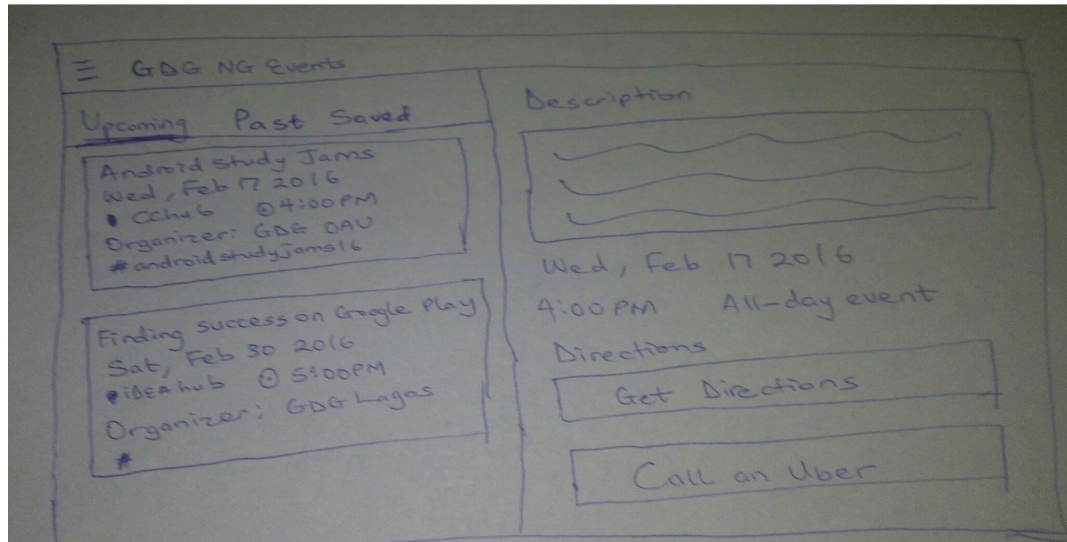 GDG NG Events
Upcoming Past Saved
Android Study Jams
Wed, Feb 17 2016
CcHub 4:00PM
Organizer: GDG OAU
#androidstudyjams16
Finding success on Google Play
Sat, Feb 30 2016
iDEA hub 5:00PM
Organizer: GDG Lagos
#
Description
Wed, Feb 17 2016
4:00 PM All-day event
Directions
Get Directions
Call an Uber